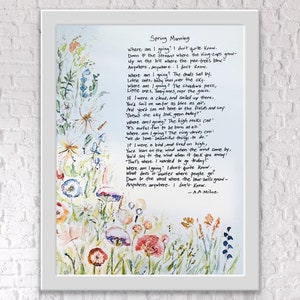 Spring Morning
Where am I going? I don't quite know.
Down to the stream where the king-cups grow-
Up on the hill where the pine-trees blow-
Anywhere, anywhere. I don't know.
Where am I going? The clouds sail by,
Little ones, baby ones, over the sky.
Where am I going? The shadows pass,
Little ones, baby ones, over the grass.
If I were a cloud, and sailed up there,
You'd sail on water as blue as air,
And you'd see me here in the fields and say:
"Doesn't the sky look green today?"
Where am I going? The high rooks call:
"It's awful fun to be born at all."
Where am I going? The ring-doves coo:
"We do have beautiful things to do."
If I were a bird, and lived on high,
You'd lean on the wind when the wind came by,
You'd say to the wind when it took you away:
"That's where I wanted to go today!"
Where am I going? I don't quite know.
What does it matter where people go?
Down to the wood where the blue-bells grow-
Anywhere, anywhere. I don't know.
-A.A. Milne